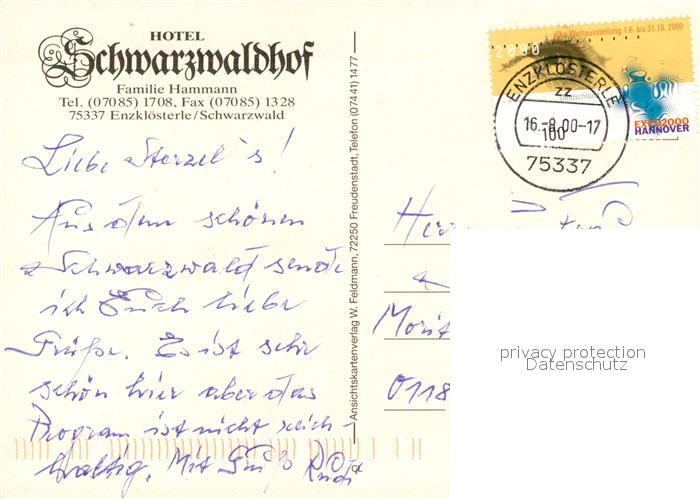 HOTEL
Schwarzwaldhof
Familie Hammann
Tel. (07085) 1708, Fax (07085) 1328
75337 Enzklösterle/Schwarzwald
Liebe Sterzel's!
Aus dem schönen
Schwarzwald sende
ich Euch liebe
Grüße. Es ist sehr
schön hier aber das
Program ist nicht reich-
haltig. Mit Gruß Rudi
Ansichtskartenverlag W. Feldmann, 72250 Freudenstadt, Telefon (07441) 1477
Die Weltausstellung 1.6. bis 31.10. 2000
2000
Deutschland
100
EXPO2000
HANNOVER
ENZKLÖSTERLE
zz
16.-8.00-17
75337
Morit
0118
privacy protection
Datenschutz